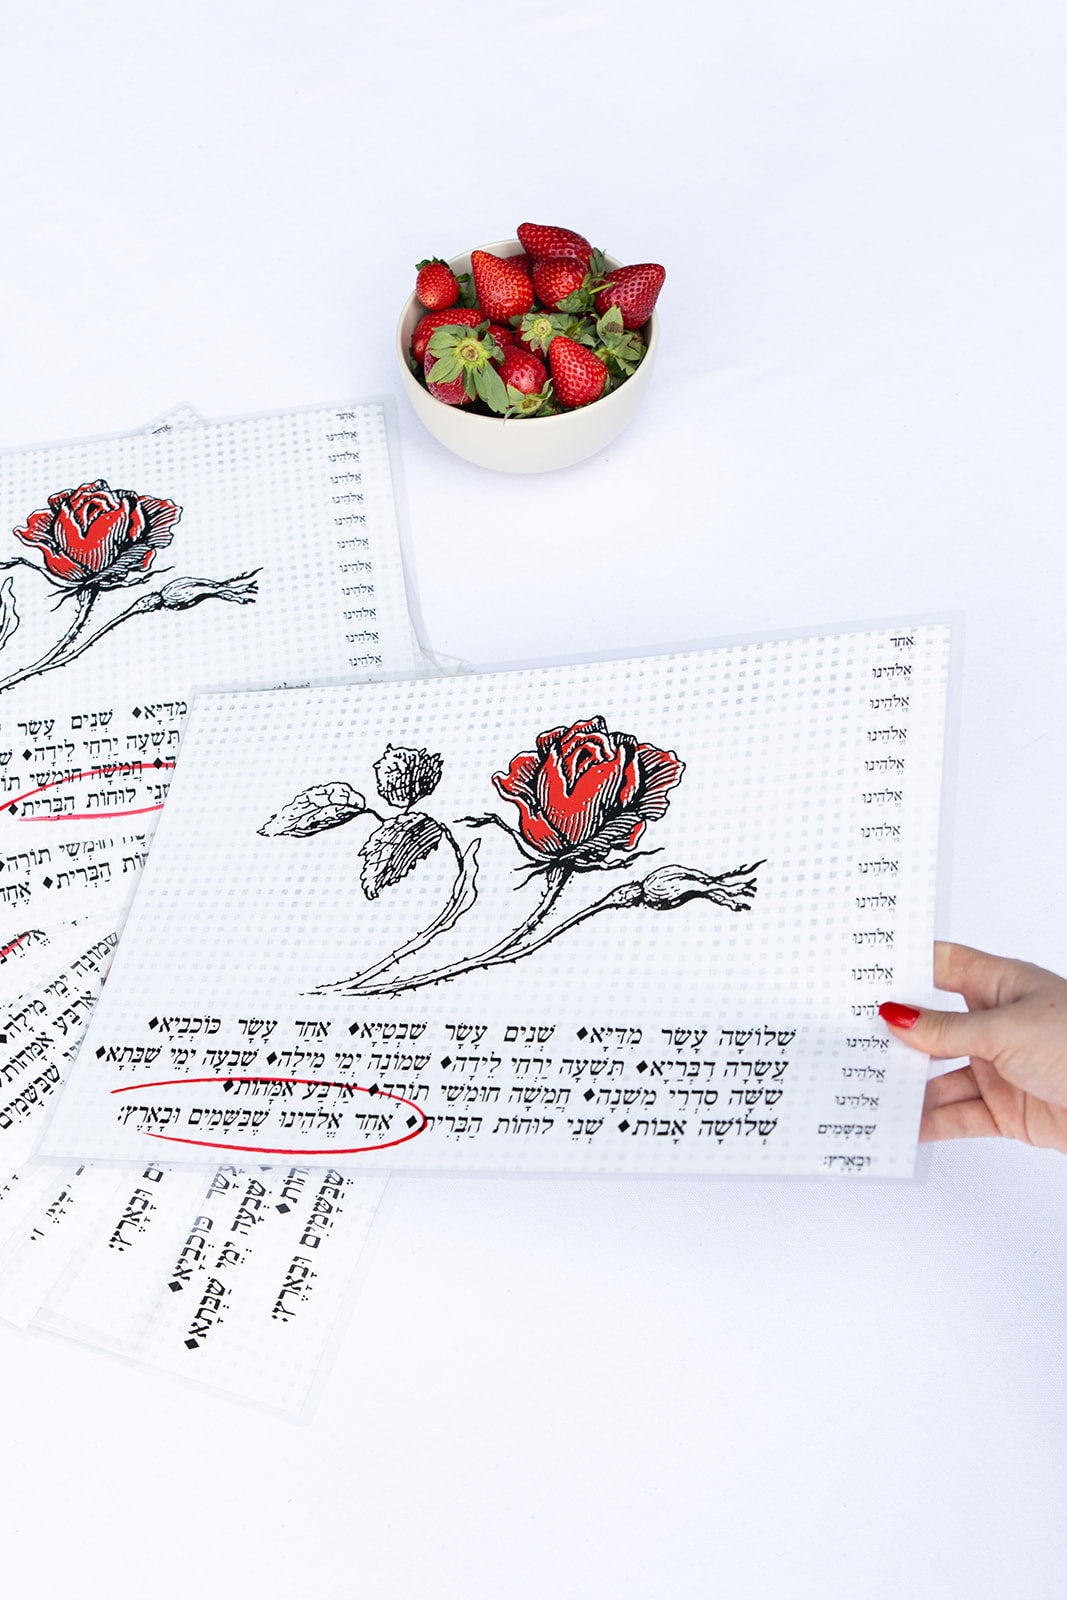 אֶחָד
אֱלֹהֵינוּ
אֱלֹהֵינוּ
אֱלֹהֵינוּ
אֱלֹהֵינוּ
אֱלֹהֵינוּ
אֱלֹהֵינוּ
אֱלֹהֵינוּ
אֱלֹהֵינוּ
אֱלֹהֵינוּ
אֱלֹהֵינוּ
אֱלֹהֵינוּ
אֶחָד
אֱלֹהֵינוּ
אֱלֹהֵינוּ
אֱלֹהֵינוּ
אֱלֹהֵינוּ
אֱלֹהֵינוּ
אֱלֹהֵינוּ
אֱלֹהֵינוּ
אֱלֹהֵינוּ
אֱלֹהֵינוּ
אֱלֹהֵינוּ
אֱלֹהֵינוּ
אֱלֹהֵינוּ
אֱלֹהֵינוּ
שֶׁבַּשָּׁמַיִם
וּבָאָרֶץ:
שְׁלוֹשָׁה עָשָׂר מִדַּיָּא♦ שְׁנֵים עָשָׂר שִׁבְטַיָּא♦ אַחַד עָשָׂר כּוֹכְבַיָּא♦
עֲשָׂרָה דִבְּרַיָּא♦ תִּשְׁעָה יַרְחֵי לֵידָה♦ שְׁמוֹנָה יְמֵי מִילָה♦ שִׁבְעָה יְמֵי שַׁבְּתָא♦
שִׁשָּׁה סִדְרֵי מִשְׁנָה♦ חֲמִשָּׁה חוּמְשֵׁי תוֹרָה♦ אַרְבַּע אִמָּהוֹת♦
שְׁלוֹשָׁה אָבוֹת♦ שְׁנֵי לוּחוֹת הַבְּרִית♦ אֶחָד אֱלֹהֵינוּ שֶׁבַּשָּׁמַיִם וּבָאָרֶץ:
מִדַּיָּא♦ שְׁנֵים עָשָׂר
תִּשְׁעָה יַרְחֵי לֵידָה♦
חֲמִשָּׁה חוּמְשֵׁי
לוּחוֹת הַבְּרִית♦
חוּמְשֵׁי תוֹרָה♦
הַבְּרִית♦ אֶחָד
שְׁמוֹנָה יְמֵי מִילָה♦
אַרְבַּע אִמָּהוֹת
שֶׁבַּשָּׁמַיִם
וּבָאָרֶץ:
עָשָׂר כּוֹכְבַיָּא♦
שִׁבְעָה יְמֵי שַׁבְּתָא♦
שֶׁבַּשָּׁמַיִם וּבָאָרֶץ: